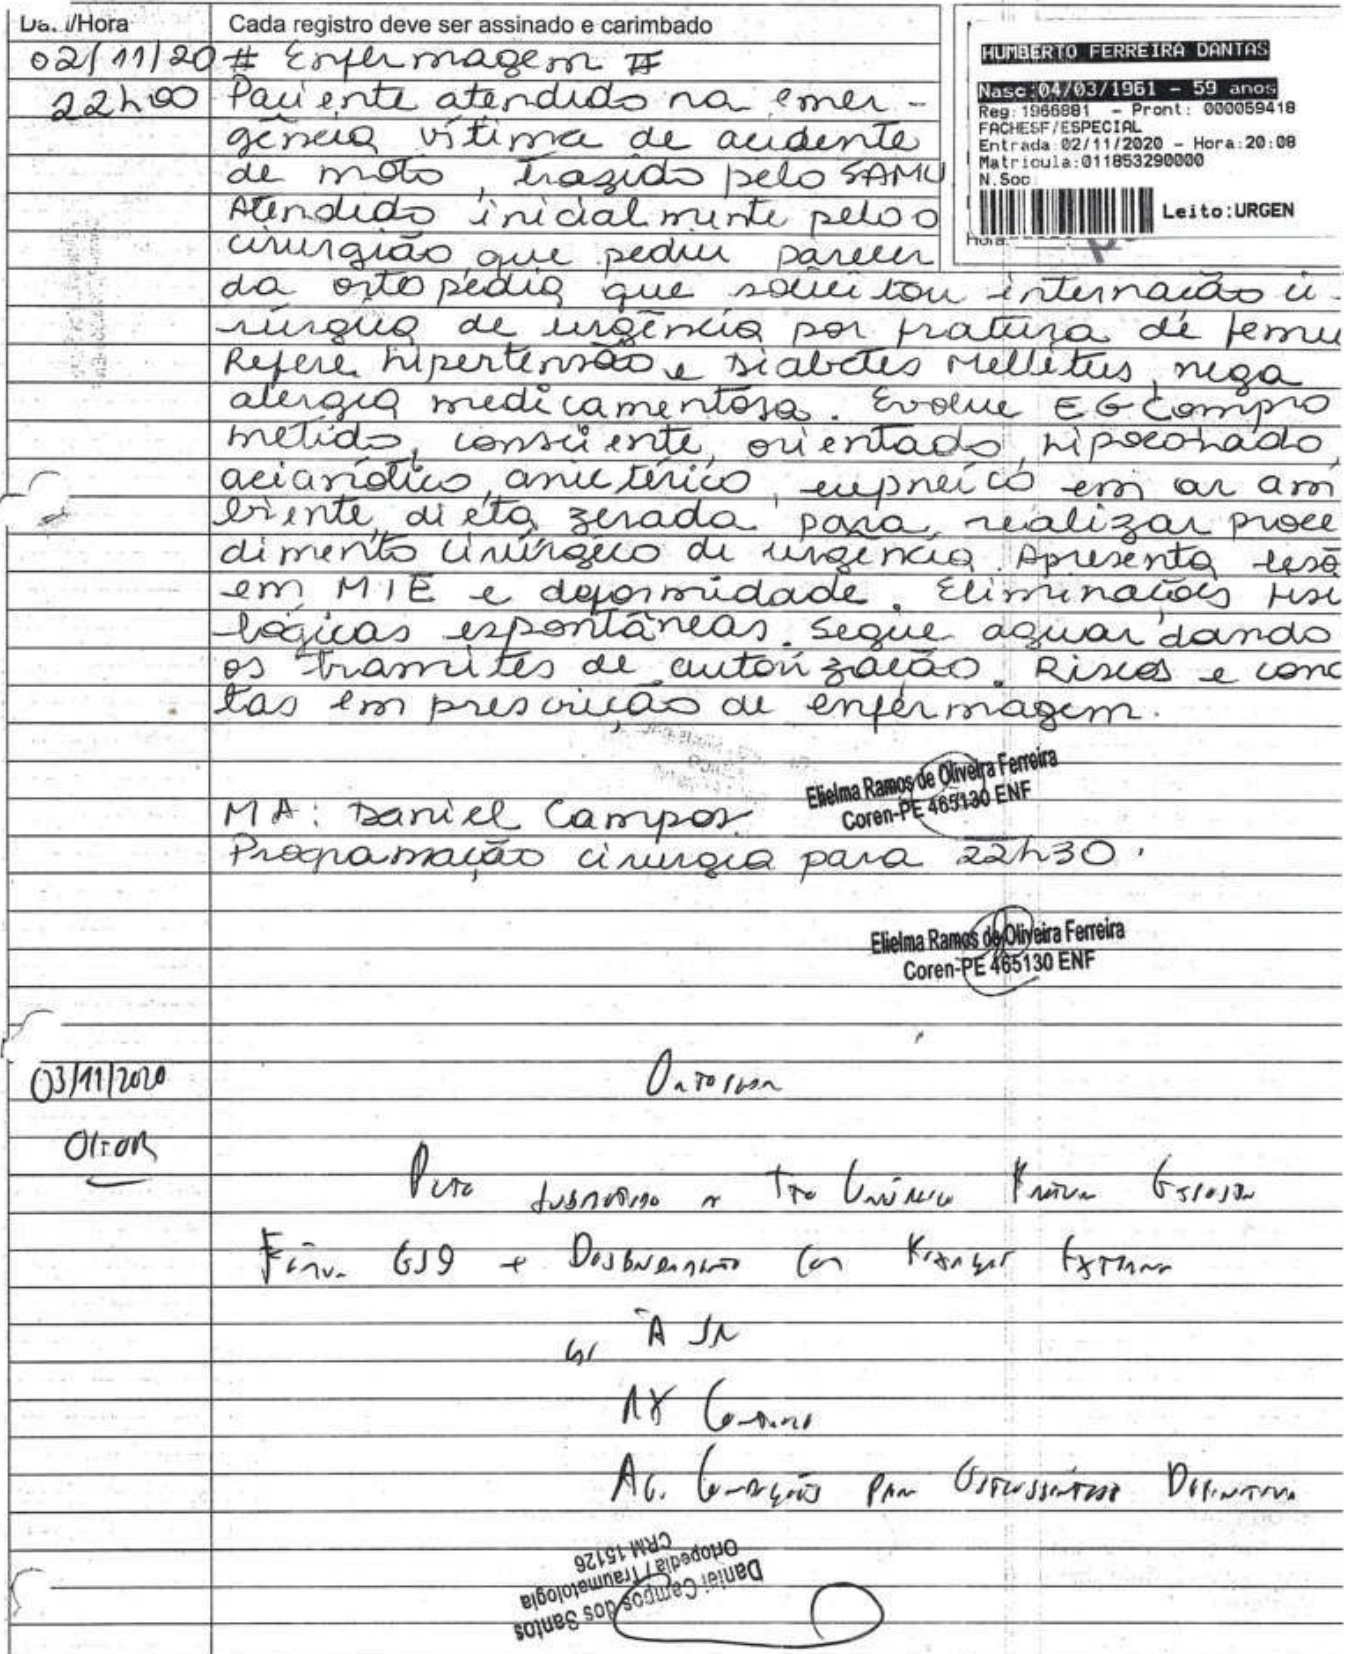 Data/Hora Cada registro deve ser assinado e carimbado
HUMBERTO FERREIRA DANTAS
Nasc:04/03/1961 - 59 anos
Reg:1966881 - Pront: 000059418
FACHESF/ESPECIAL
Entrada:02/11/2020 - Hora:20:08
Matricula:011853290000
N.Soc
Leito:URGEN
Hora:
02/11/20 # Enfermagem #
22h00 Paciente atendido na emer-
gência vítima de acidente
de moto, trazido pelo SAMU
Atendido inicialmente pelo o
cirurgião que pediu parecer
da ortopedia que solicitou internação ci-
rúrgica de urgência por fratura de femu
Refere hipertensão e Diabetes Mellitus, nega
alergia medicamentosa. Evolue EG Compro
metido, consciente, orientado, hipocorado,
acianótico, anictérico, eupneico em ar am
biente, dieta zerada para realizar proce
dimento cirúrgico de urgência. Apresenta lesõ
em MIE e deformidade. Eliminações fisi
lógicas espontâneas. Segue aguardando
os tramites de autorização. Riscos e cond
tas em prescrição de enfermagem.
Elielma Ramos de Oliveira Ferreira
Coren-PE 465130 ENF
MA: Daniel Campos
Programação cirurgia para 22h30.
Elielma Ramos de Oliveira Ferreira
Coren-PE 465130 ENF
03/11/2020
a Tto
+ com
À SR
Ag. Condições para Osteossíntese Definitiva
Daniel Campos dos Santos
Ortopedia / Traumatologia
CRM 15126